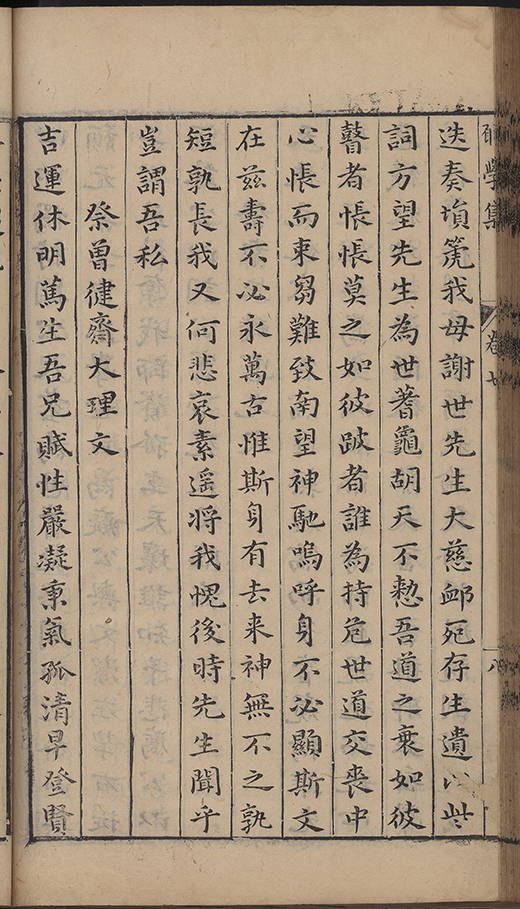 學集 卷七 八
迭奏塤篪我母謝世先生大慈䘏死存生遺以些
詞方望先生為世蓍龜胡天不憗吾道之衰如彼
瞽者悵悵莫之如彼跛者誰為持危世道交喪中
心悵而束芻難致南望神馳嗚呼身不必顯斯文
在茲壽不必永萬古惟斯身有去来神無不之孰
短孰長我又何悲哀素遥將我愧後時先生聞乎
豈謂吾私
祭曾健齋大理文
吉運休明篤生吾兄賦性嚴凝秉氣孤清早登賢